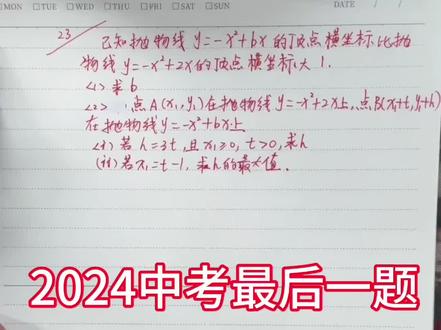 MON TUE WED THU FRI SAT SUN
DATE / /
23 已知抛物线 y=-x²+bx 的顶点横坐标比抛
物线 y=-x²+2x 的顶点横坐标大 1.
<1> 求b
<2> 点A(x₁,y₁)在抛物线 y=-x²+2x上,点B(x₁+t,y₁+h)
在抛物线 y=-x²+bx上
(i) 若 h=3t,且 x₁≥0, t>0,求h
(ii) 若x₁=t-1, 求h的最大值.
2024中考最后一题